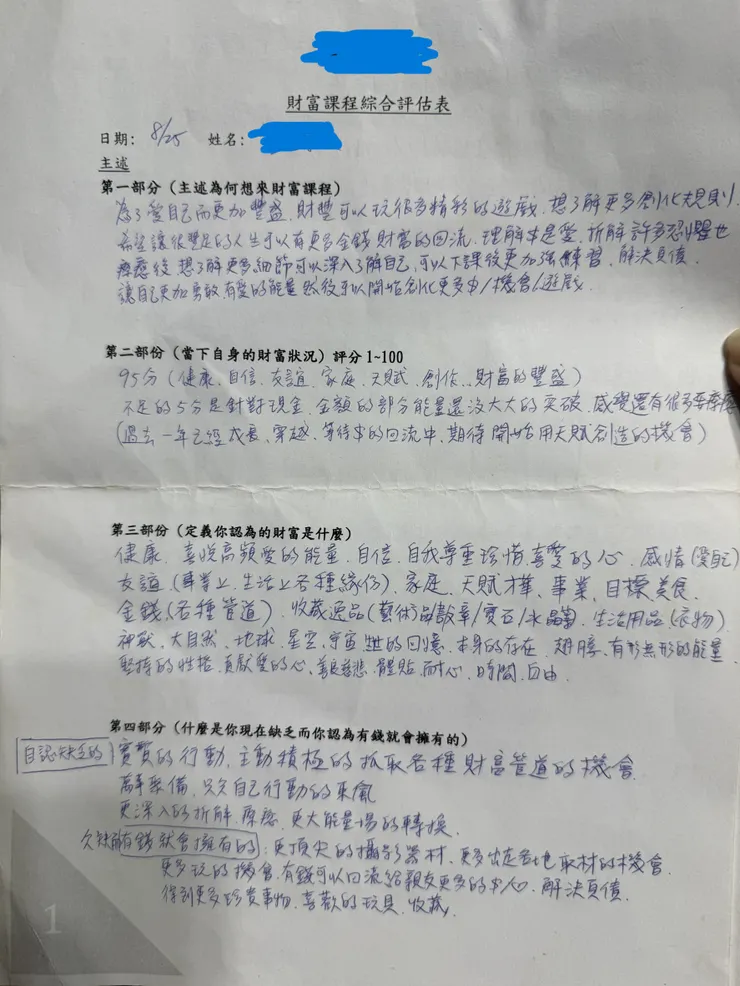 財富課程綜合評估表
日期: 8/25 姓名:
主述
第一部分(主述為何想來財富課程)
為了愛自己而更加豐盛、財豐可以玩很多精彩的遊戲、想了解更多創化規則、
希望讓很豐足的人生可以有更多金錢財富的回流、理解本是愛、拆解許多恐懼也
療癒後想了解更多細節可以深入了解自己,可以下課後更加強練習、解決負債、
讓自己更加勇敢、有愛的能量然後可以開始創化更多 機會/遊戲、
第二部份(當下自身的財富狀況)評分1~100
95分(健康、自信、友誼、家庭、天賦、創作、財富的豐盛)
不足的5分是針對現金、金額的部分能量還沒大大的突破、感覺還有很多要療癒
(過去一年已經成長、穿越、等待 的回流中、期待開始用天賦創造的機會)
第三部份(定義你認為的財富是什麼)
健康、喜悅高頻愛的能量、自信、自我尊重珍惜、喜愛的心、感情(愛自己)
友誼、(事業上、生活上各種緣份)、家庭、天賦才華、事業、目標、美食、
金錢、(各種管道)、收藏逸品(藝術品/ /寶石/水晶等)、生活用品(衣物)
神獸、大自然、地球、星空、宇宙、 的回憶、本身的存在、翅膀、有形無形的能量
堅持的性格、貢獻愛的心、善良慈悲、體貼、耐心、時間、自由
第四部分(什麼是你現在缺乏而你認為有錢就會擁有的)
自認缺乏的 實質的行動、主動積極的抓取各種財富管道的機會
萬事俱備、只欠自己行動的東風
更深入的拆解、療癒、更大能量場的轉換、
欠缺有錢就會擁有的: 更頂尖的攝影器材、更多出走各地取材的機會、
更多玩的機會、有錢可以回流給親友更多的 心、解決負債、
得到更多珍貴事物、喜歡的玩具、收藏、
1